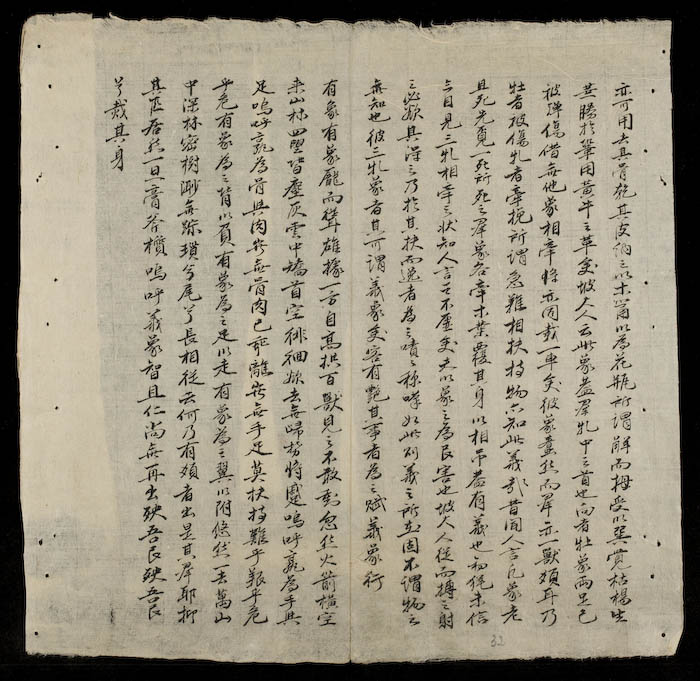 亦可用去其骨乾其皮傅之以木筩以為花瓶所謂解而拇受以巽寔枯楊生
荑勝於鞏用黃牛之革矣坡人人云此象盖羣牝中之首也向者牡象兩足已
被殫傷借無他象相牽將亦同載一車矣彼象蠢然而羣亦一獸頑耳乃
牡者被傷牝者牽挽所謂急難相扶持物亦知此義哉昔聞人言凡象老
且死先覓一死所死之羣象各牽木葉覆其身以相吊盖有義也初猶未信
今目見三牝相牽之狀知人言之不虛矣夫以象之為民害也坡人人從而搏之射
之必欲其得之乃於其扶而逸者為之嘖之稱嘆如此則義之所在固不謂物之
無知也彼三牝象者其可謂義象矣客有艷其事者為之賦義象行
有象有象龐而聳雄據一方自高拱百獸見之不敢動忽然火箭橫空
来山林四望皆塵灰雲中矯首空徘徊欲去無歸勢將蹙嗚呼孰為手其
足嗚呼孰為骨與肉兮無骨肉已乖離兮無手足莫扶持難乎艱乎危
乎危有象為之背以負有象為之足以走有象為之翼以附悠然一去萬山
中深林密樹渺無踪瑣兮尾兮長相從云何乃有頑者出是其羣耶抑
其匹居然一旦膏斧櫍嗚呼義象智且仁尚無再出殃吾民殃吾民
兮戕其身
32